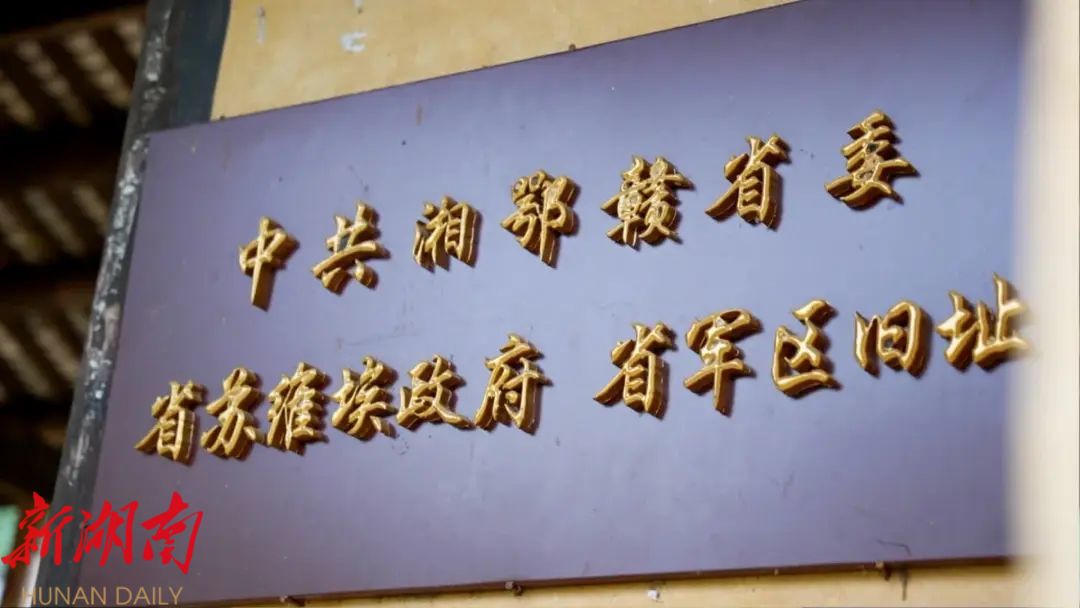 中共湘鄂赣省委
省苏维埃政府 省军区旧址
新湖南
HUNAN DAILY